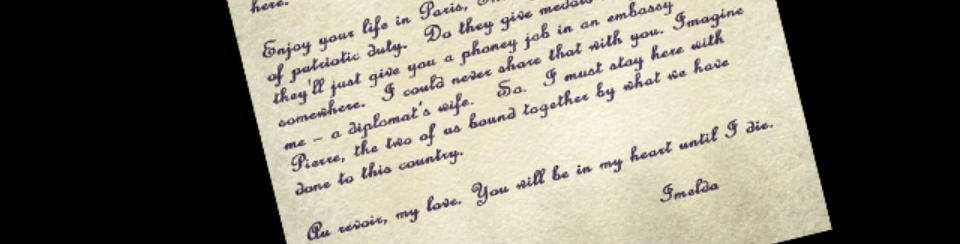 here.
Enjoy your life in Paris,
of patriotic duty. Do they give medals
they'll just give you a phoney job in an embassy
somewhere. I could never share that with you. Imagine
me – a diplomat's wife. So. I must stay here with
Pierre, the two of us bound together by what we have
done to this country.
Au revoir, my love. You will be in my heart until I die.
Imelda